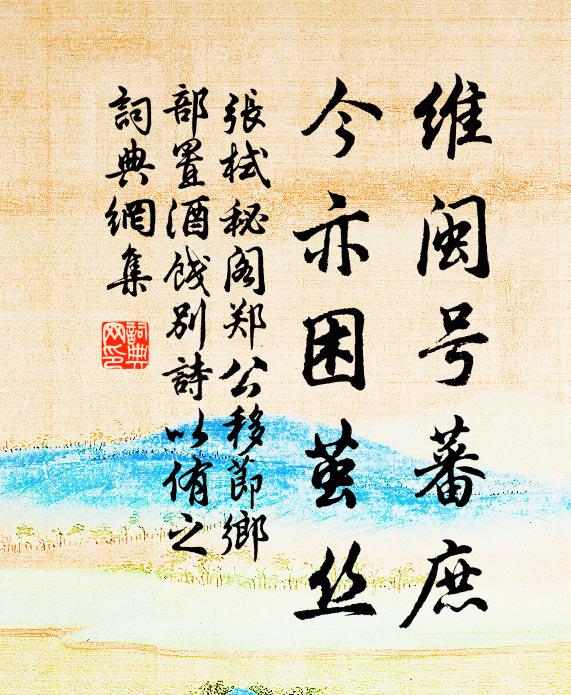 维闽号蕃庶
今亦困茧丝
張栻秘阁郑公移節鄉
部置酒餞别詩以侑之
詞典網集
詞典网印